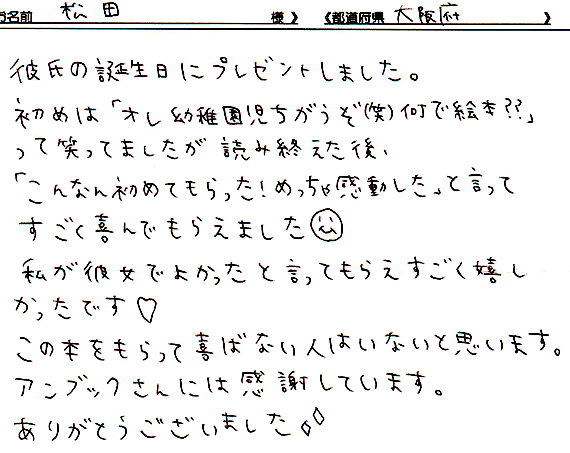 お名前 松田 様》 《都道府県 大阪府 》
彼氏の誕生日にプレゼントしました。
初めは「オレ幼稚園児ちがうぞ(笑)何で絵本??」
って笑ってましたが読み終えた後、
「こんなん初めてもらった!めっちゃ感動した」と言って
すごく喜んでもらえました
私が彼女でよかったと言ってもらえすごく嬉し
かったです♡
この本をもらって喜ばない人はいないと思います。
アンブックさんには感謝しています。
ありがとうございました